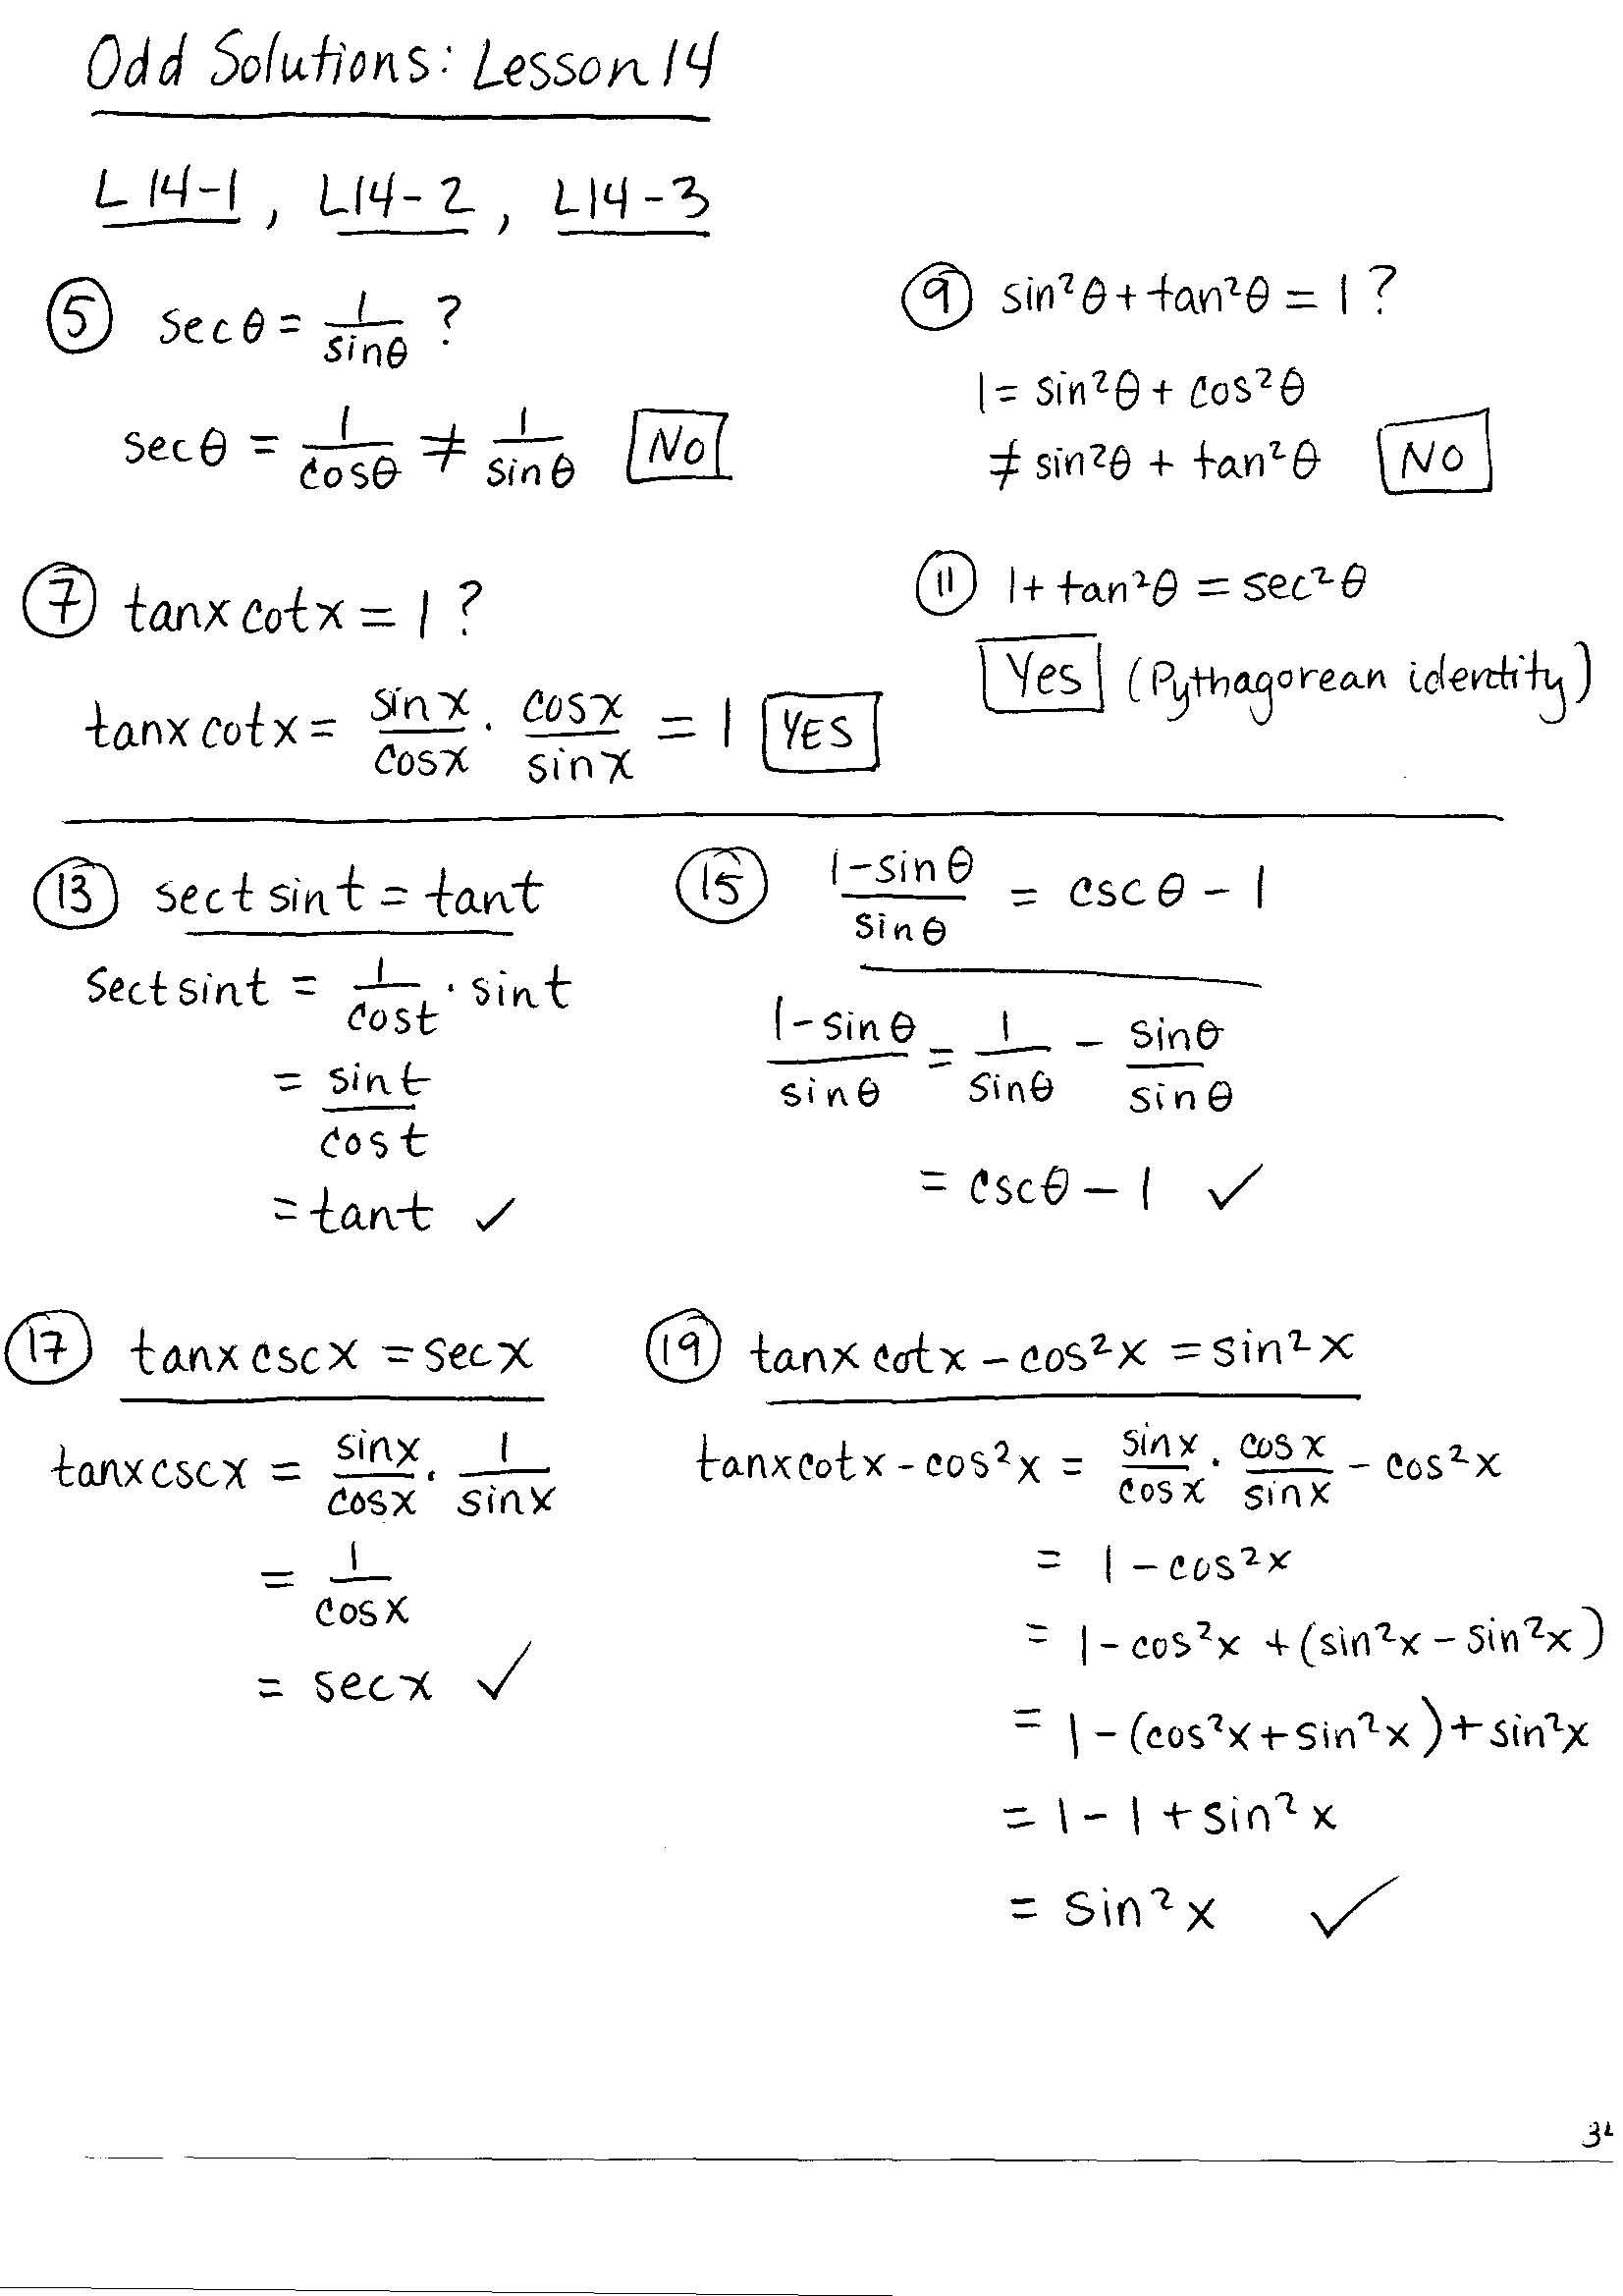 Odd Solutions: Lesson 14
L14-1, L14-2, L14-3
⑤ secθ = 1/sinθ ?
secθ = 1/cosθ ≠ 1/sinθ NO
⑦ tanx cotx = 1 ?
tanx cotx = sinx/cosx · cosx/sinx = 1 YES
⑨ sin²θ + tan²θ = 1 ?
1 = sin²θ + cos²θ
≠ sin²θ + tan²θ NO
⑪ 1 + tan²θ = sec²θ
Yes (Pythagorean identity)
⑬ sect sint = tant
sect sint = 1/cost · sint
= sint/cost
= tant ✓
⑮ (1-sinθ)/sinθ = cscθ - 1
(1-sinθ)/sinθ = 1/sinθ - sinθ/sinθ
= cscθ - 1 ✓
⑰ tanx cscx = secx
tanx cscx = sinx/cosx · 1/sinx
= 1/cosx
= secx ✓
⑲ tanx cotx - cos²x = sin²x
tanx cotx - cos²x = sinx/cosx · cosx/sinx - cos²x
= 1 - cos²x
= 1 - cos²x + (sin²x - sin²x)
= 1 - (cos²x + sin²x) + sin²x
= 1 - 1 + sin²x
= sin²x ✓